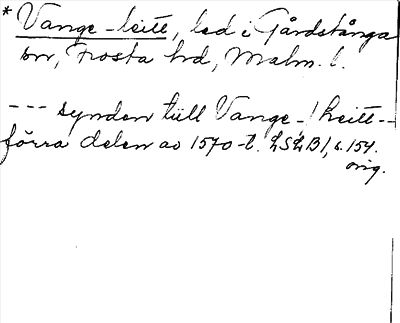 * Vange-leitt, led i Gårdstånga
sn, Frosta hd, Malm. l.
--- synden till Vange-/heitt--
förra delen av 1570-t. LSLB1, s. 154.
orig.